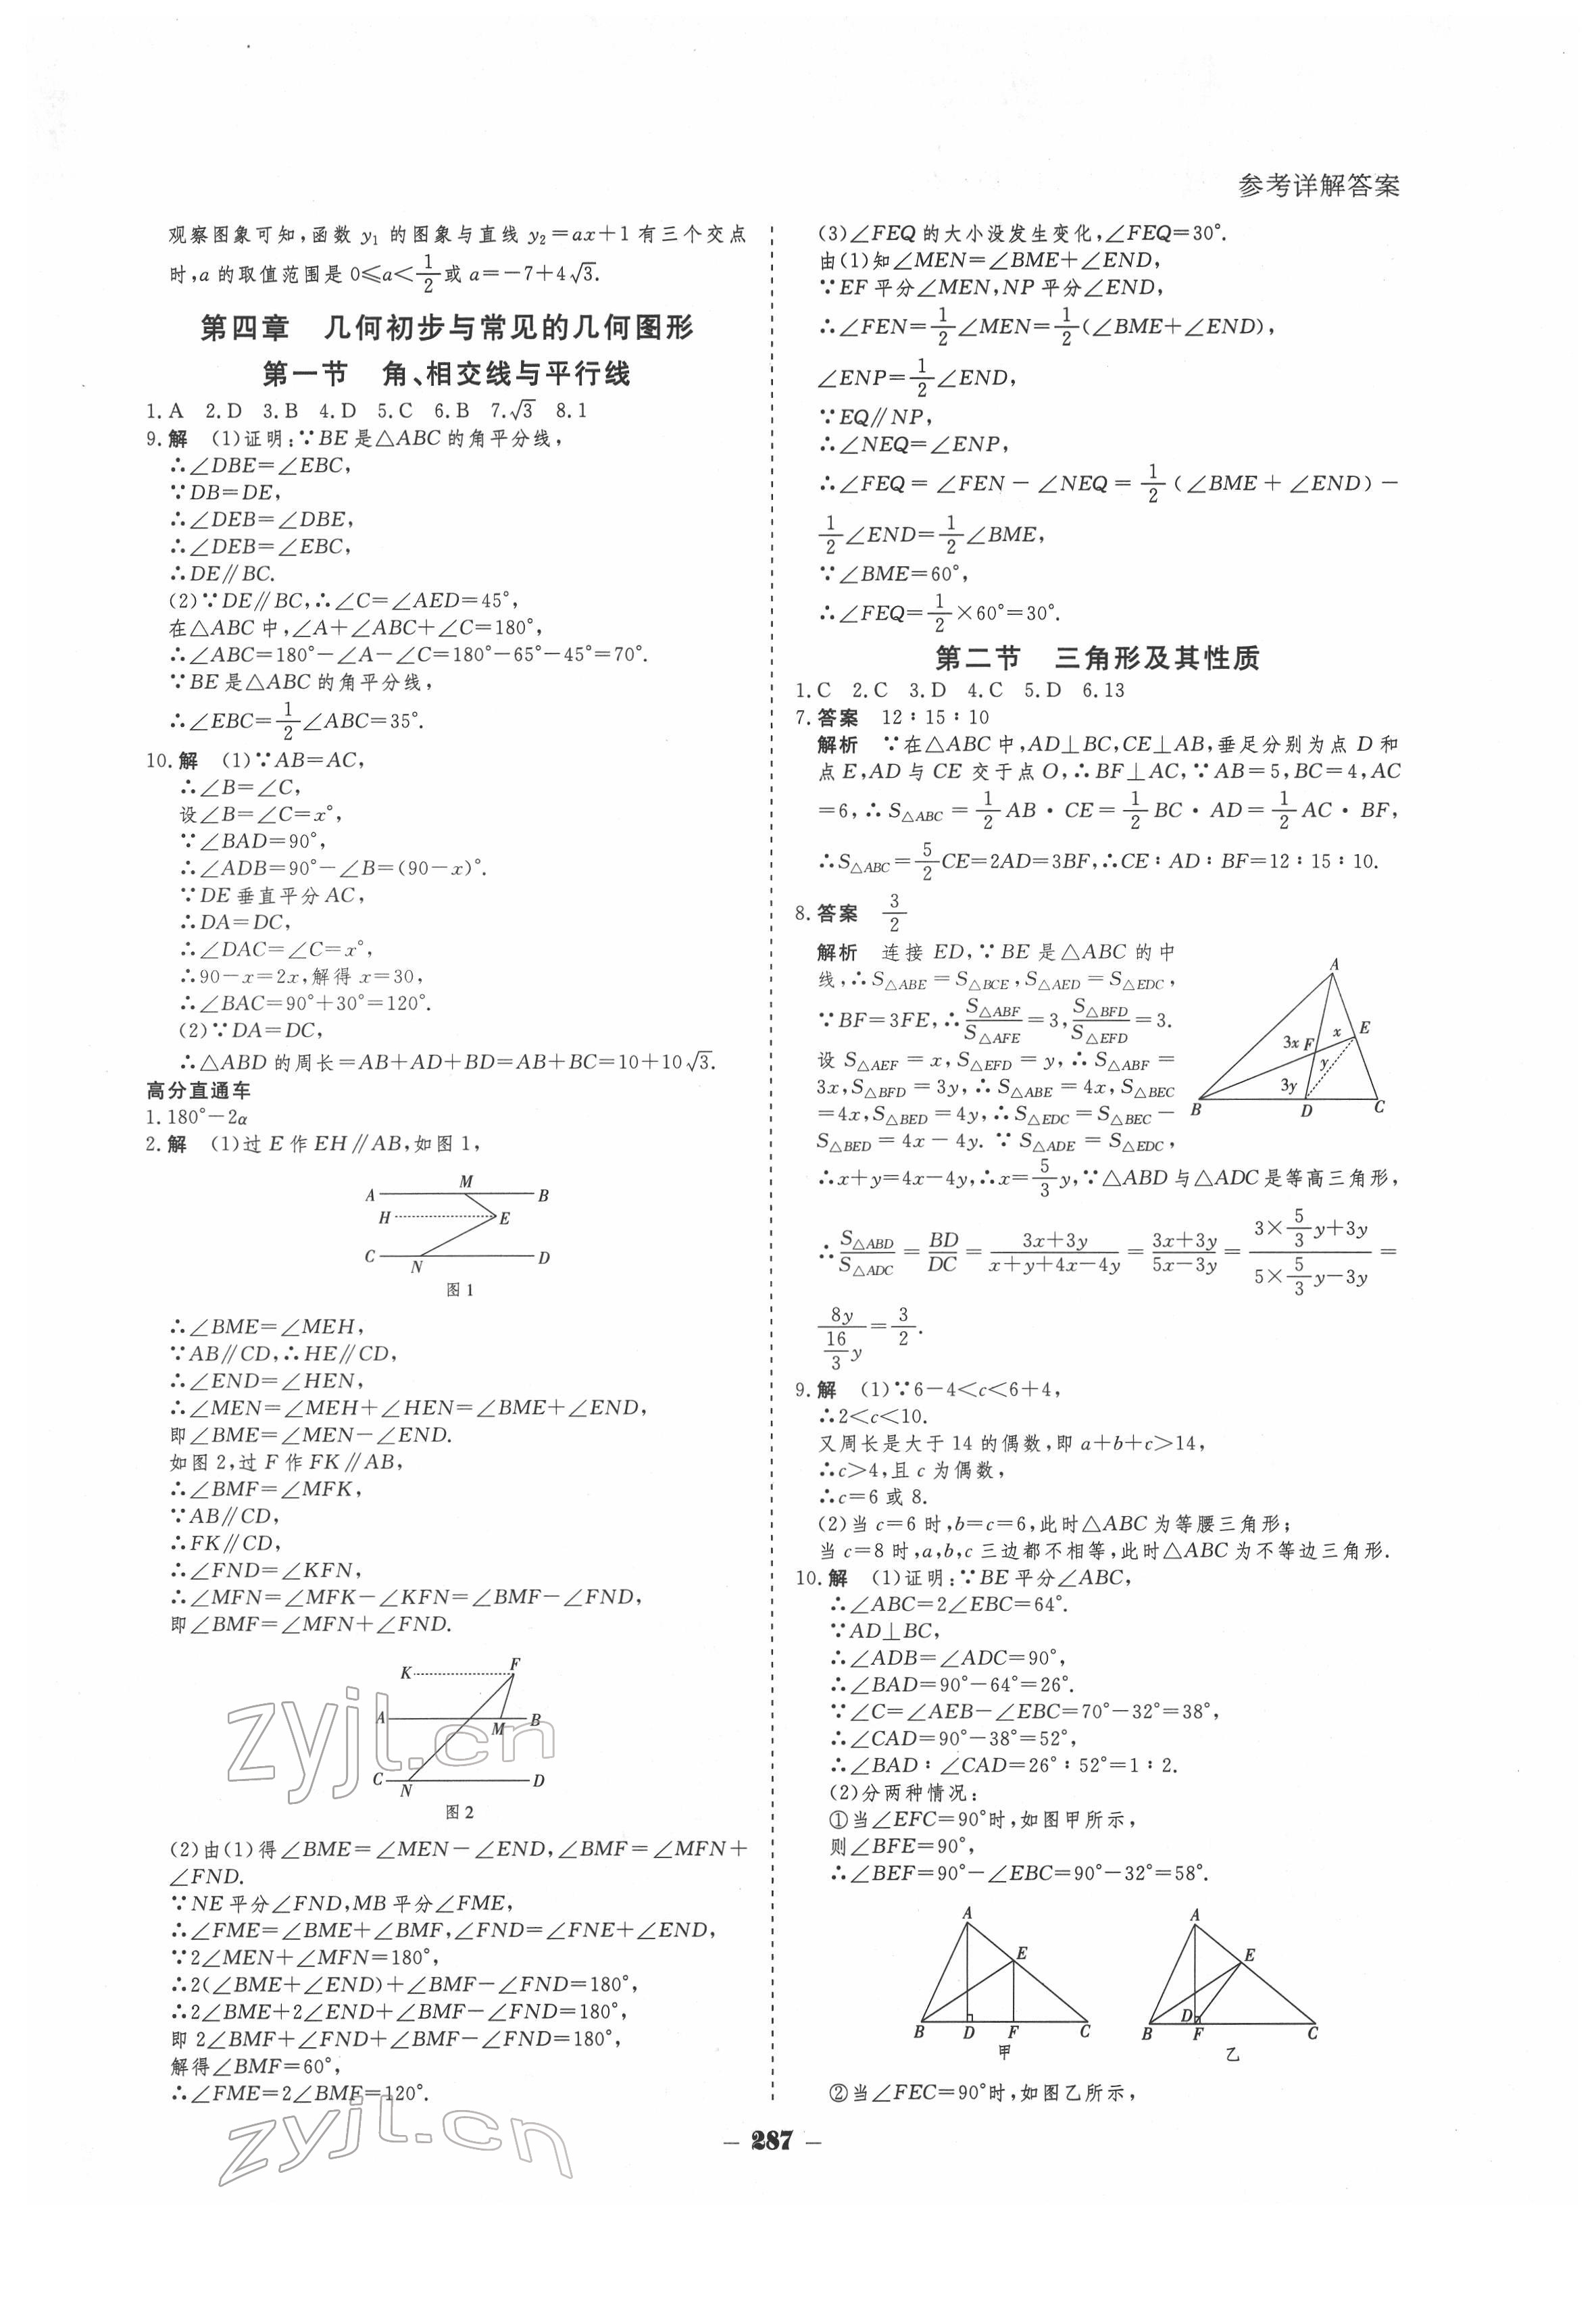 参考详解答案
观察图象可知,函数 y₁ 的图象与直线 y₂=ax+1 有三个交点
时,a 的取值范围是 0≤a<1/2或 a=-7+4√3.
第四章 几何初步与常见的几何图形
第一节 角、相交线与平行线
1.A 2.D 3.B 4.D 5.C 6.B 7.√3 8.1
9.解 (1)证明:∵BE 是△ABC 的角平分线,
∴∠DBE=∠EBC,
∵DB=DE,
∴∠DEB=∠DBE,
∴∠DEB=∠EBC,
∴DE∥BC.
(2)∵DE∥BC,∴∠C=∠AED=45°,
在△ABC 中,∠A+∠ABC+∠C=180°,
∴∠ABC=180°-∠A-∠C=180°-65°-45°=70°.
∵BE 是△ABC 的角平分线,
∴∠EBC=1/2∠ABC=35°.
10.解 (1)∵AB=AC,
∴∠B=∠C,
设∠B=∠C=x°,
∵∠BAD=90°,
∴∠ADB=90°-∠B=(90-x)°.
∵DE 垂直平分 AC,
∴DA=DC,
∴∠DAC=∠C=x°,
∴90-x=2x,解得 x=30,
∴∠BAC=90°+30°=120°.
(2)∵DA=DC,
∴△ABD 的周长=AB+AD+BD=AB+BC=10+10√3.
高分直通车
1.180°-2α
2.解 (1)过 E 作 EH∥AB,如图 1,
A M B
H E
C N D
图 1
∴∠BME=∠MEH,
∵AB∥CD,∴HE∥CD,
∴∠END=∠HEN,
∴∠MEN=∠MEH+∠HEN=∠BME+∠END,
即∠BME=∠MEN-∠END.
如图 2,过 F 作 FK∥AB,
∴∠BMF=∠MFK,
∵AB∥CD,
∴FK∥CD,
∴∠FND=∠KFN,
∴∠MFN=∠MFK-∠KFN=∠BMF-∠FND,
即∠BMF=∠MFN+∠FND.
K F
A M B
C N D
图 2
zyjl.cn
(2)由(1)得∠BME=∠MEN-∠END,∠BMF=∠MFN+
∠FND.
∵NE 平分∠FND,MB 平分∠FME,
∴∠FME=∠BME+∠BMF,∠FND=∠FNE+∠END,
∵2∠MEN+∠MFN=180°,
∴2(∠BME+∠END)+∠BMF-∠FND=180°,
∴2∠BME+2∠END+∠BMF-∠FND=180°,
即 2∠BMF+∠FND+∠BMF-∠FND=180°,
解得∠BMF=60°,
∴∠FME=2∠BMF=120°.
zyjl.cn
(3)∠FEQ 的大小没发生变化,∠FEQ=30°.
由(1)知∠MEN=∠BME+∠END,
∵EF 平分∠MEN,NP 平分∠END,
∴∠FEN=1/2∠MEN=1/2(∠BME+∠END),
∠ENP=1/2∠END,
∵EQ∥NP,
∴∠NEQ=∠ENP,
∴∠FEQ=∠FEN-∠NEQ=1/2(∠BME+∠END)-
1/2∠END=1/2∠BME,
∵∠BME=60°,
∴∠FEQ=1/2×60°=30°.
第二节 三角形及其性质
1.C 2.C 3.D 4.C 5.D 6.13
7.答案 12∶15∶10
解析 ∵在△ABC 中,AD⊥BC,CE⊥AB,垂足分别为点 D 和
点 E,AD 与 CE 交于点 O,∴BF⊥AC,∵AB=5,BC=4,AC
=6,∴S△ABC=1/2AB·CE=1/2BC·AD=1/2AC·BF,
∴S△ABC=5/2CE=2AD=3BF,∴CE∶AD∶BF=12∶15∶10.
8.答案 3/2
解析 连接 ED,∵BE 是△ABC 的中
线,∴S△ABE=S△BCE,S△AED=S△EDC,
∵BF=3FE,∴S△ABF/S△AFE=3,S△BFD/S△EFD=3.
设 S△AEF=x,S△EFD=y,∴S△ABF=
3x,S△BFD=3y,∴S△ABE=4x,S△BEC
=4x,S△BED=4y,∴S△EDC=S△BEC-
S△BED=4x-4y.∵S△ADE=S△EDC,
A
3x F x E
3y y
B D C
∴x+y=4x-4y,∴x=5/3y,∵△ABD 与△ADC 是等高三角形,
∴S△ABD/S△ADC=BD/DC=(3x+3y)/(x+y+4x-4y)=(3x+3y)/(5x-3y)=(3×5/3y+3y)/(5×5/3y-3y)=
8y/(16/3y)=3/2.
9.解 (1)∵6-4<c<6+4,
∴2<c<10.
又周长是大于 14 的偶数,即 a+b+c>14,
∴c>4,且 c 为偶数,
∴c=6 或 8.
(2)当 c=6 时,b=c=6,此时△ABC 为等腰三角形;
当 c=8 时,a,b,c 三边都不相等,此时△ABC 为不等边三角形.
10.解 (1)证明:∵BE 平分∠ABC,
∴∠ABC=2∠EBC=64°.
∵AD⊥BC,
∴∠ADB=∠ADC=90°,
∴∠BAD=90°-64°=26°.
∵∠C=∠AEB-∠EBC=70°-32°=38°,
∴∠CAD=90°-38°=52°,
∴∠BAD∶∠CAD=26°∶52°=1∶2.
(2)分两种情况:
①当∠EFC=90°时,如图甲所示,
则∠BFE=90°,
∴∠BEF=90°-∠EBC=90°-32°=58°.
A E B D F C
甲
A E B D F C
乙
②当∠FEC=90°时,如图乙所示,
- 287 -